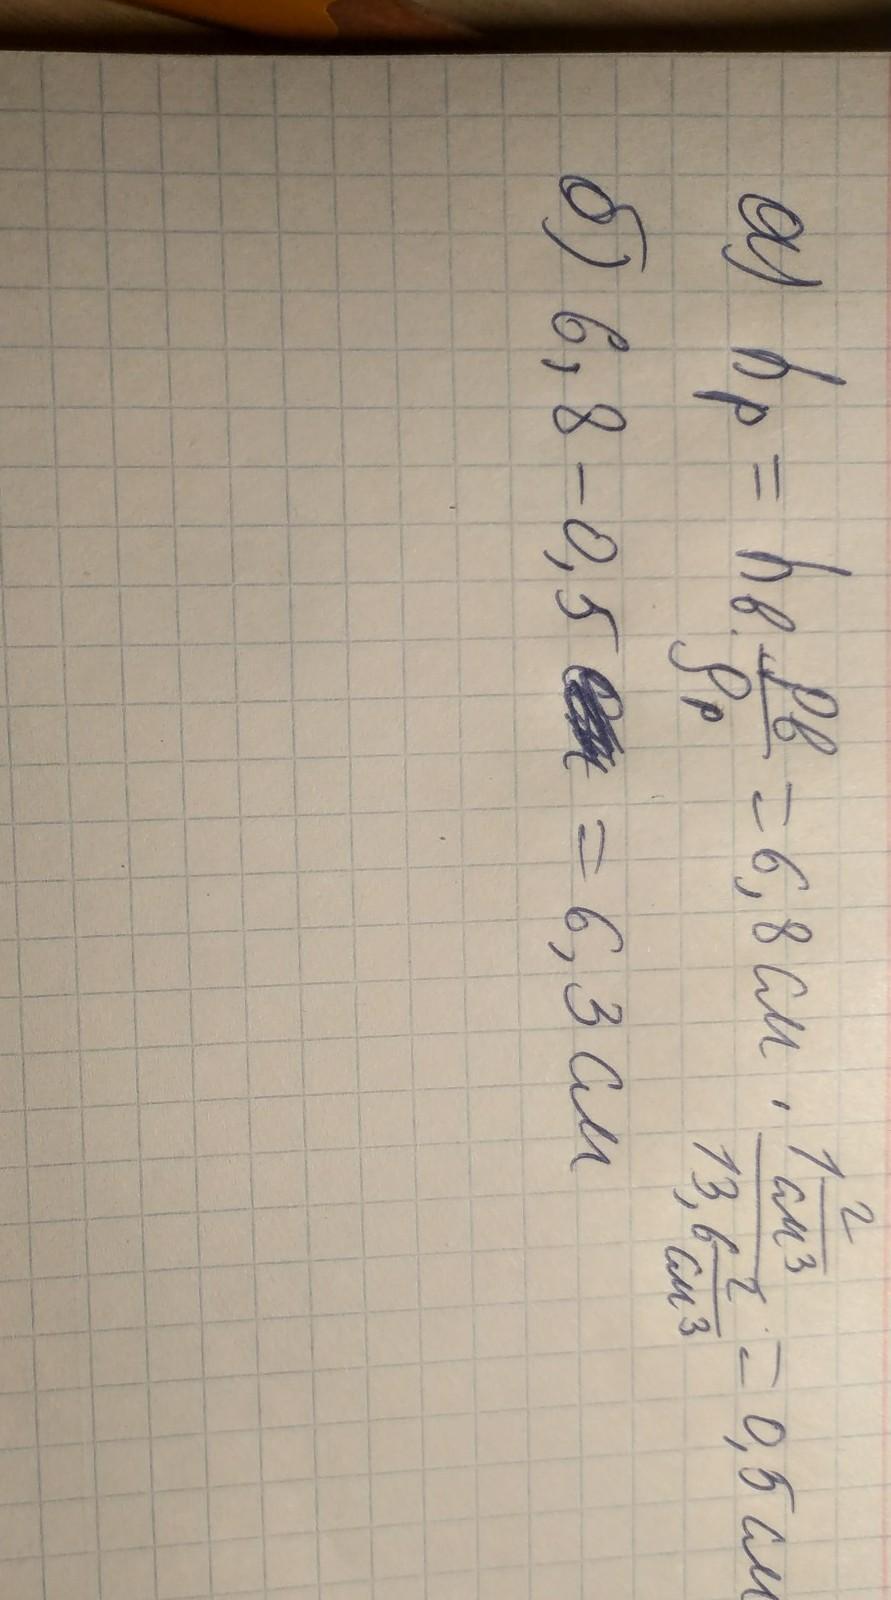 а) hр = hв · ρв/ρр = 6,8 см · 1 г/см³ / 13,6 г/см³ = 0,5 см
б) 6,8 - 0,5 = 6,3 см